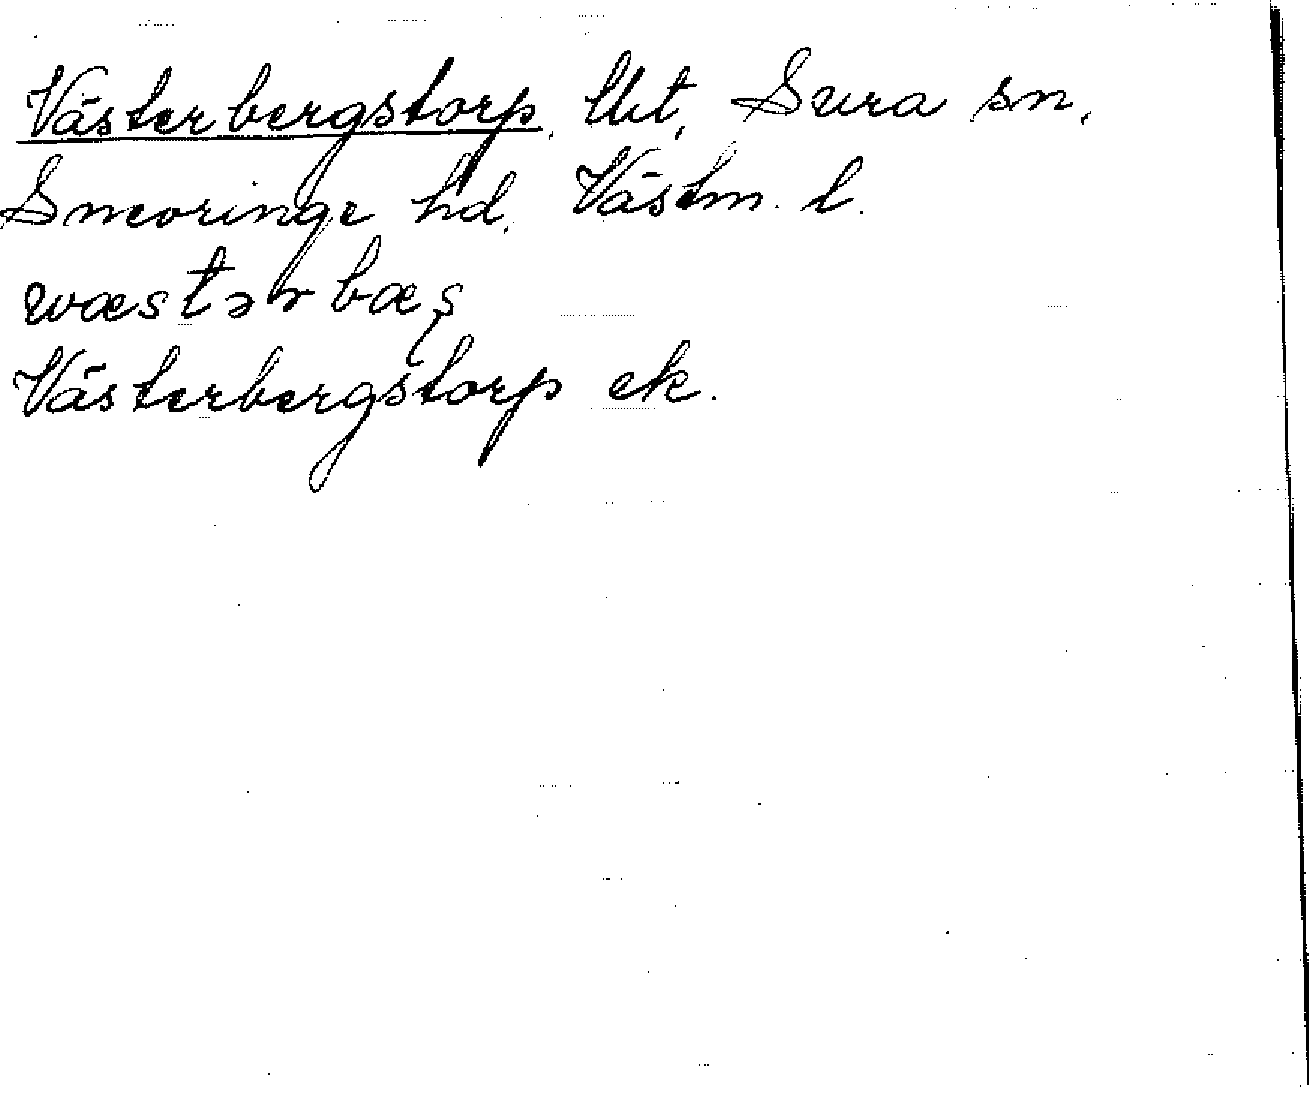 Västerbergstorp, lht, Sura sn,
Snevringe hd, Västm. l.
wæstər bæş
Västerbergstorp ek.